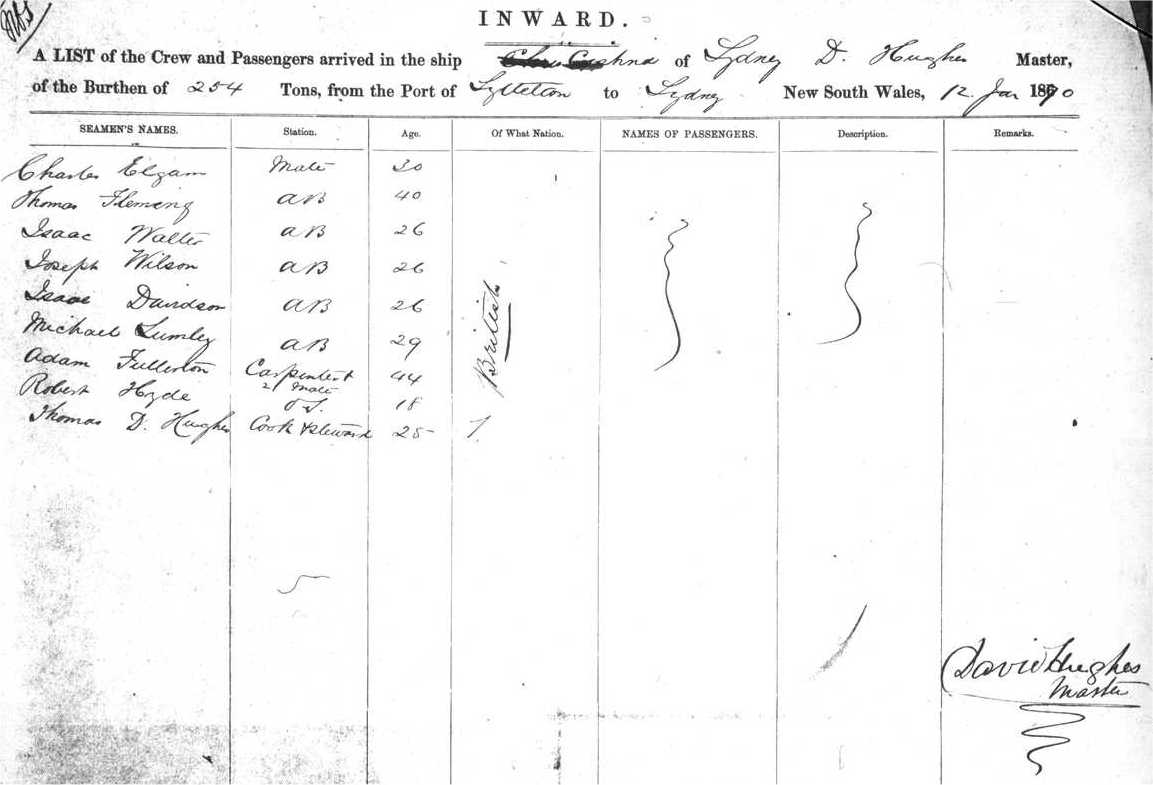 INWARD.
A LIST of the Crew and Passengers arrived in the ship of Sydney D. Hughes Master,
of the Burthen of 254 Tons, from the Port of Lyttelton to Sydney New South Wales, 12 Jan 1870
SEAMEN'S NAMES. Station. Age. Of What Nation. NAMES OF PASSENGERS. Description. Remarks.
Charles Elgam Mate 30
Thomas Fleming AB 40
Isaac Walter AB 26
Joseph Wilson AB 26
Isaac Davidson AB 26
British
Michael Lumley AB 29
Adam Fullerton Carpenter & 44
2 Mate
Robert Hyde OS. 18
Thomas D. Hughes Cook & Steward 25
David Hughes
Master